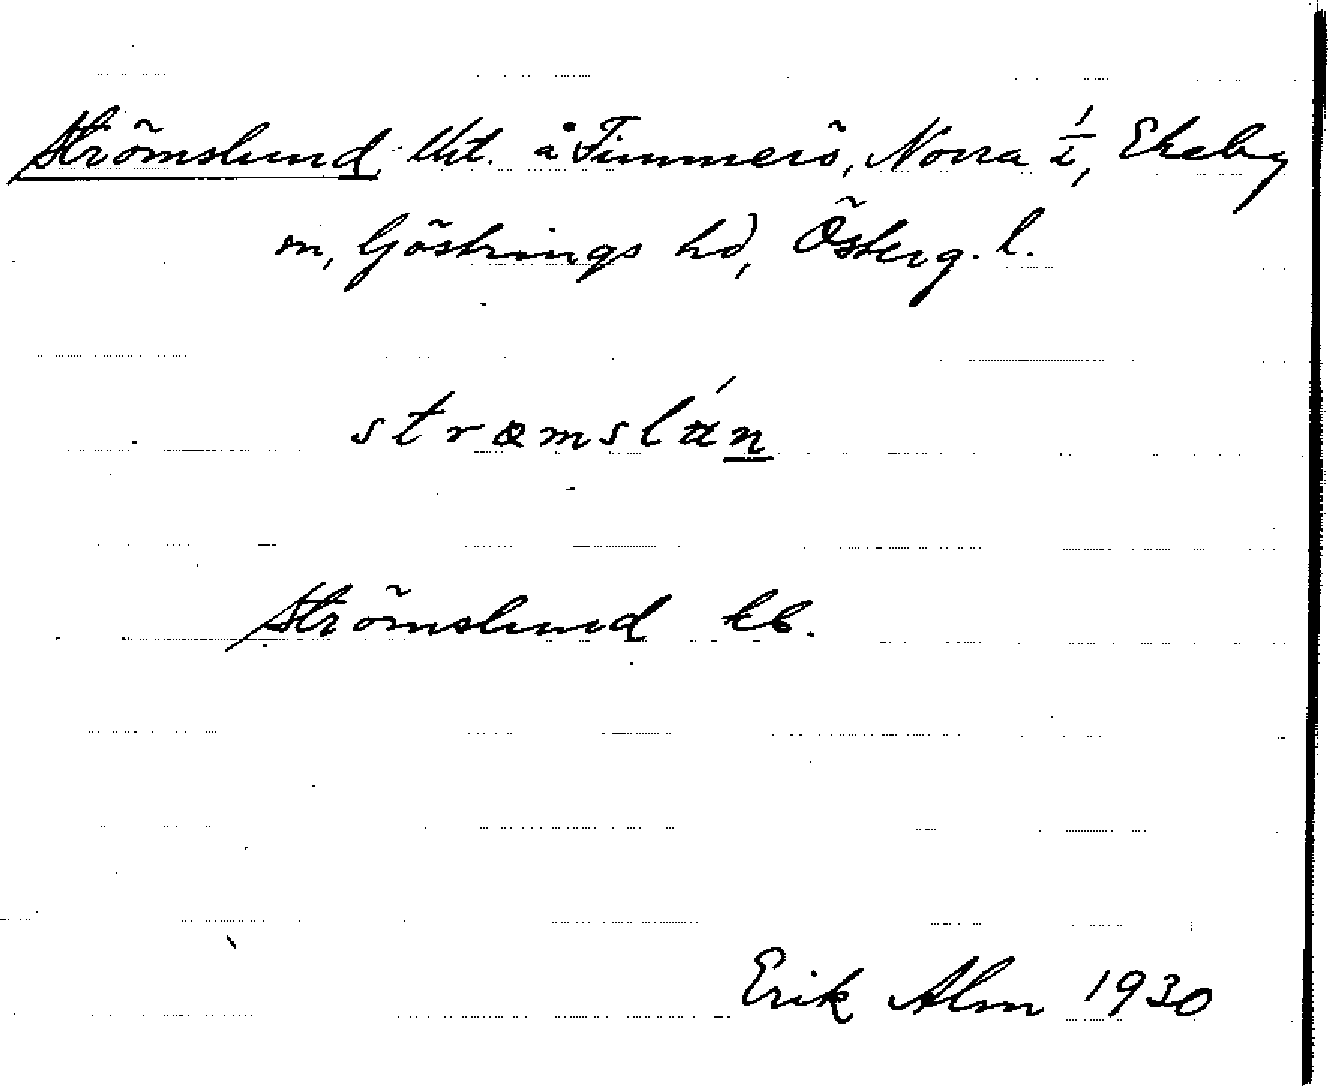 Strömslund, tht. å Timmerö, Norra 1/2, Ekeby
sn, Göstrings hd, Österg. l.
strœmslún
Strömslund kb.
Erik Alm 1930